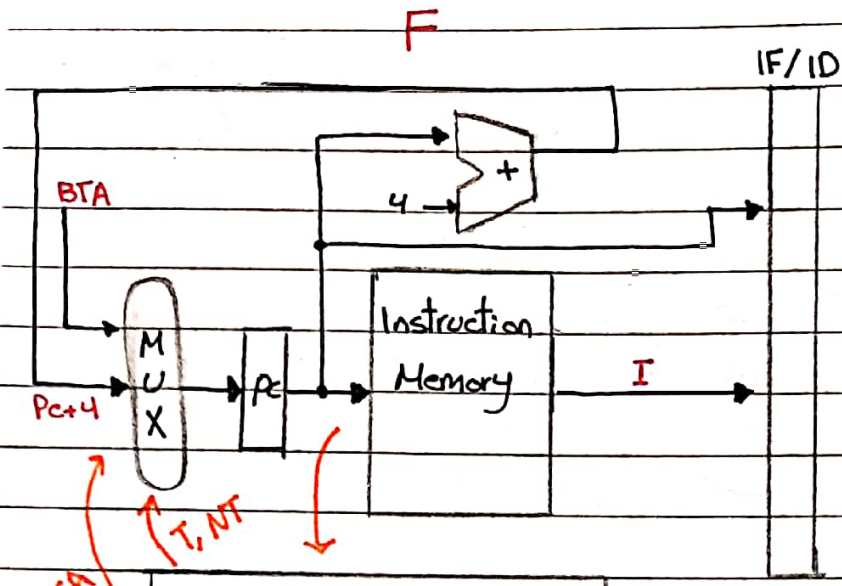 F
IF/ID
+
4
BTA
M
U
X
PC
Instruction
Memory
I
Pc+4
T, NT